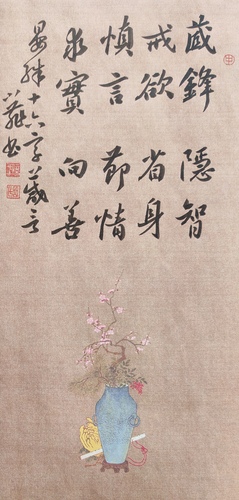 藏鋒 隱智
戒欲 省身
慎言 節情
求實 向善
十六字箴言